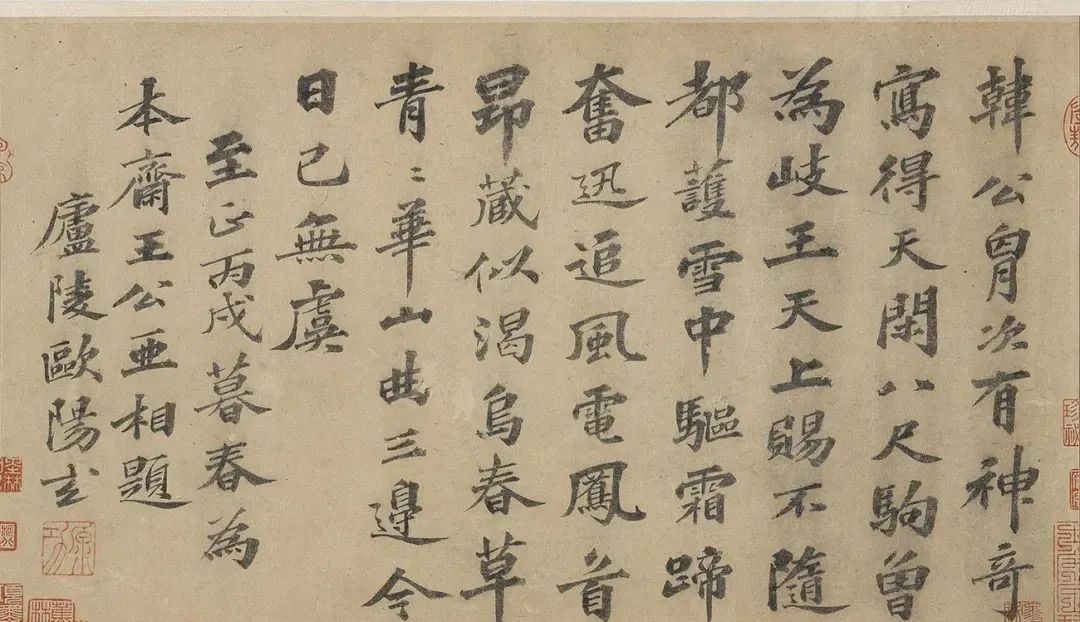 韓公胷次有神奇
寫得天閑八尺駒曾
為岐王天上賜不隨
都護雪中驅霜蹄
奮迅追風電鳳首
昂藏似渴烏春草
青〻華山曲三邊令
日已無虞
至正丙戌暮春為
本齋王公亞相題
廬陵歐陽玄
原功